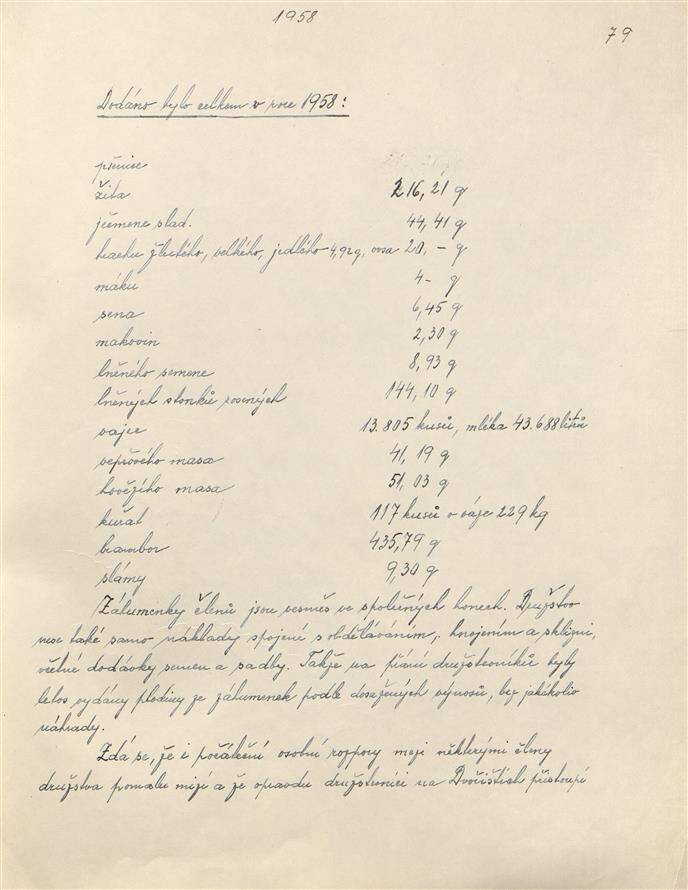 1958
79
Dodáno bylo celkem v roce 1958:
pšenice
žita 216,21 q
ječmene slad. 44,41 q
hrachu žlutého, velkého, jedlého 4,92 q, ovsa 20,- q
máku 4- q
sena 6,45 q
makovin 2,30 q
lněného semene 8,93 q
lněných stonků rosených 144,10 q
vajec 13.805 kusů, mléka 43.688 litrů
vepřového masa 41,19 q
hovězího masa 51,03 q
kuřat 117 kusů o váze 229 kg
brambor 435,79 q
slámy 9,30 q
Záhumenky členů jsou vesměs ve společných honech. Družstvo
nese také samo náklady spojené s obděláváním, hnojením a sklizní,
včetně dodávky semen a sadby. Takže na přání družstevníků byly
letos vydány plodiny ze záhumenek podle dosažených výnosů, bez jakékoliv
náhrady.
Zdá se, že i počáteční osobní rozpory mezi některými členy
družstva pomalu mizí a že opravdu družstevníci na Dvorištích přistoupí